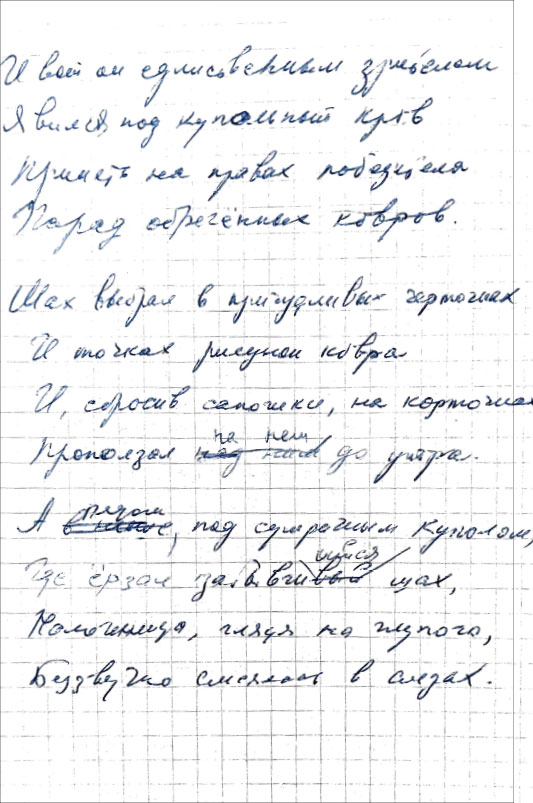 И вот он единственным зрителем
Явился под купольный кров
Принять на правах победителя
Парад обреченных ковров.
Шах выбрал в причудливых черточках
И точках рисунок ковра
И, сбросив сапожки, на корточках
Проползал по нем до утра.
А рядом, под сумрачным куполом,
Где ёрзал забывшийся шах,
Наложница, глядя на глупого,
Беззвучно смеялась в слезах.